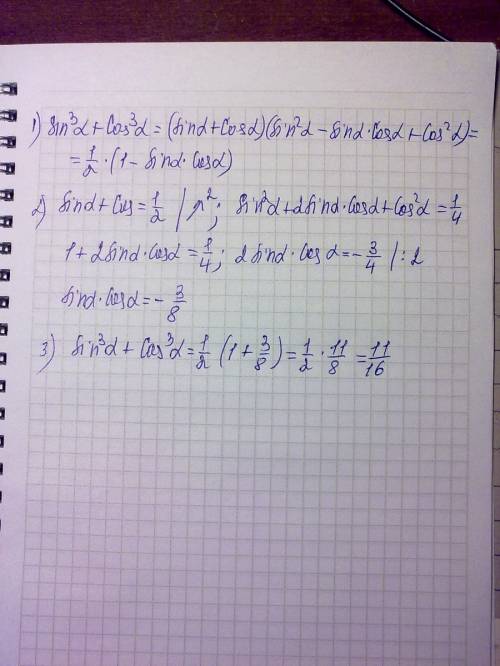 1) Sin³α + Cos³α = (Sinα + Cosα)(Sin²α − Sinα·Cosα + Cos²α) =
= 1/2 · (1 − Sinα·Cosα)
2) Sinα + Cos = 1/2 | ^2; Sin²α + 2Sinα·Cosα + Cos²α = 1/4
1 + 2Sinα·Cosα = 1/4; 2Sinα·Cosα = −3/4 | :2
Sinα·Cosα = −3/8
3) Sin³α + Cos³α = 1/2 (1 + 3/8) = 1/2 · 11/8 = 11/16